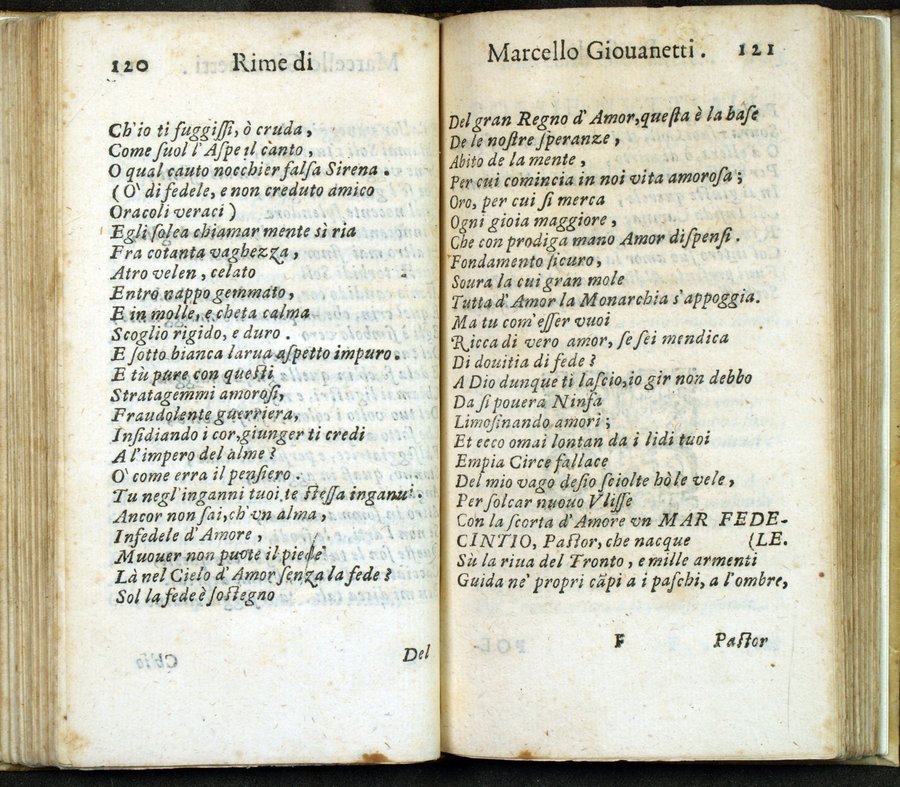 120 Rime di
Ch'io ti fuggiſſi, ò cruda,
Come ſuol l'Aſpe il cànto,
O qual cauto nocchier falſa Sirena.
(O' di fedele, e non creduto amico
Oracoli veraci)
Egli ſolea chiamar mente sì ria
Fra cotanta vaghezza,
Atro velen, celato
Entro nappo gemmato,
E in molle, e cheta calma
Scoglio rigido, e duro.
E ſotto bianca larua aſpetto impuro.
E tù pure con queſti
Stratagemmi amoroſi,
Fraudolente guerriera,
Inſidiando i cor, giunger ti credi
A l'impero del àlme?
O' come erra il penſiero.
Tu negl'inganni tuoi te ſteſſa inganui.
Ancor non ſai, ch'vn alma,
Infedele d'Amore,
Muouer non puote il piede
Là nel Cielo d'Amor ſenza la fede?
Sol la fede è ſoſtegno
Del
Marcello Giouanetti. 121
Del gran Regno d'Amor, queſta è la baſe
De le noſtre ſperanze,
Abito de la mente,
Per cui comincia in noi vita amoroſa;
Oro, per cui ſi merca
Ogni gioia maggiore,
Che con prodiga mano Amor diſpenſi.
Fondamento ſicuro,
Soura la cui gran mole
Tutta d'Amor la Monarchia s'appoggia.
Ma tu com'eſſer vuoi
Ricca di vero amor, ſe ſei mendica
Di douitia di fede?
A Dio dunque ti laſcio, io gir non debbo
Da ſi pouera Ninfa
Limoſinando amori;
Et ecco omai lontan da i lidi tuoi
Empia Circe fallace
Del mio vago deſio ſciolte hò le vele,
Per ſolcar nuouo Vliſſe
Con la ſcorta d'Amore vn MAR FEDE-
CINTIO, Paſtor, che nacque (LE.
Sù la riua del Tronto, e mille armenti
Guida ne' propri cãpi a i paſchi, a l'ombre,
F Paſtor